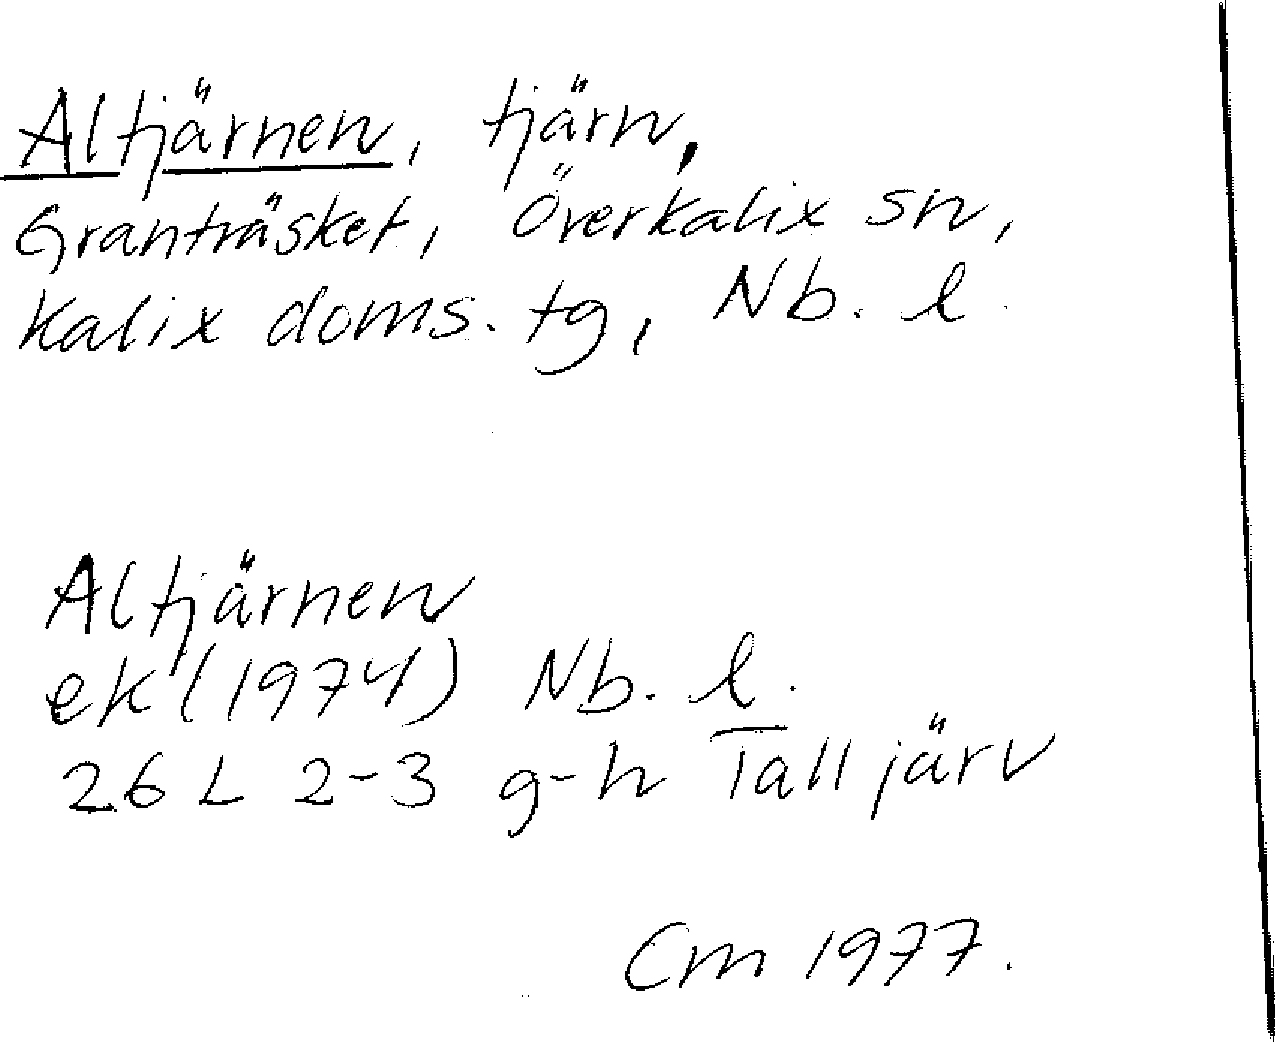 Altjärnen, tjärn,
Granträsket, Överkalix sn,
Kalix doms. tg, Nb. l.
Altjärnen
ek (1974) Nb. l.
26 L 2-3 g-h Talljärv
Cm 1977.